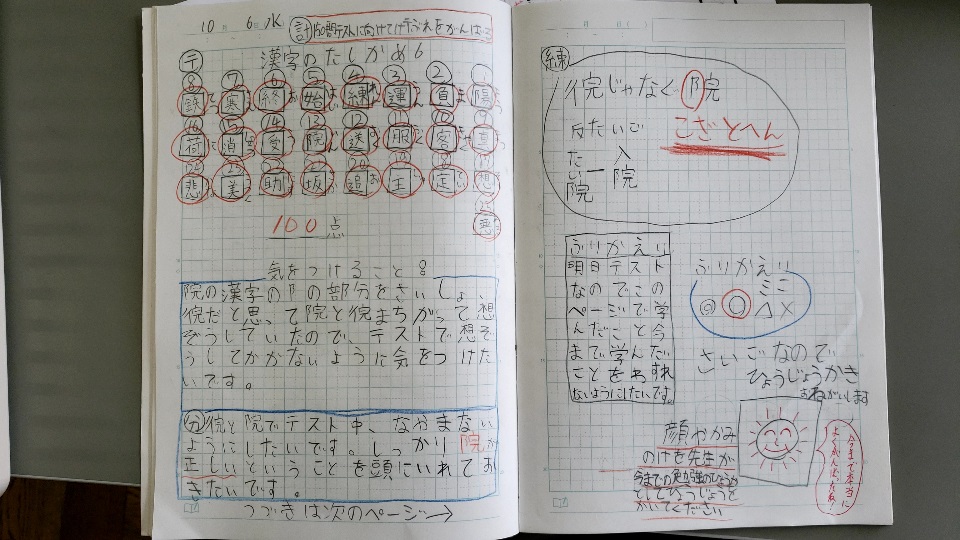 10 6 水
計 50問テストに向けてけテぶれをがんばる
テ 漢字のたしかめ6
⑧鉄 ⑦寒 ⑥終 ⑤始 ④練 ③運 ②負 ①陽
⑯荷 ⑮消 ⑭受 ⑬院 ⑫送 ⑪服 ⑩客 ⑨真
悲 美 助 坂 追 主 定 想
悪
100点
気をつけること!
院の漢字の阝の部分をさいしょ、
俒だと思って院と俒まちがって想
ぞうしていたので、テストで想ぞ
うしてかかないように気をつけた
いです。
分 俒と院でテスト中、なやまない
ようにしたいです。しっかり院が
正しいということを頭にいれてお
きたいです。
つづきは次のページ→
練
俒じゃなく院
こざとへん
反たいご
たいじ院 ー 入院
ふりかえり
明日テスト
なのでこの
ページで学
んだこと今
まで学んだ
ことをわすれ
ないようにしたいです。
ふりかえり
ミニ
◎ ○ △ ×
さいごなので
ひょうじょうかき
おねがいします
顔やかみ
のけを先生が
今までの勉強のひょうか
としてひょうじょうを
かいてください
今まで本当に
よくがんばったね!